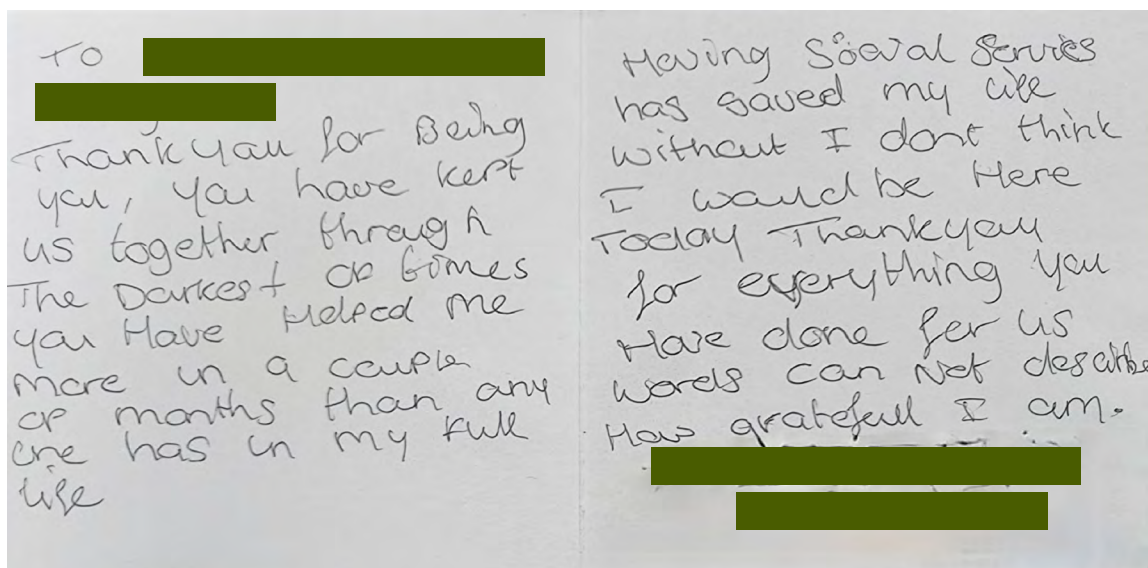 To
Thankyou for Being
you, you have kept
us together through
The Darkest of times
you Have Helped me
more in a couple
of months than any
one has in my full
life
Having Social Services
has saved my life
without I dont think
I would be Here
Today Thankyou
for everything you
Have done for us
words can Not describe
How gratefull I am.